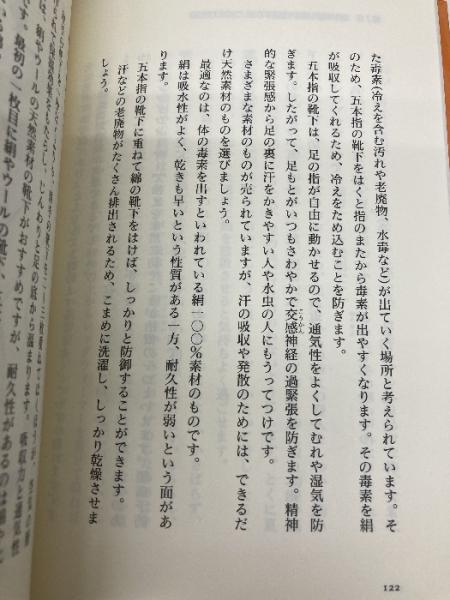 た毒素(冷えを含む汚れや老廃物、水毒など)が出ていく場所と考えられています。そ
のため、五本指の靴下をはくと指のまたから毒素が出やすくなります。その毒素を絹
が吸収してくれるため、冷えをため込むことを防ぎます。
五本指の靴下は、足の指が自由に動かせるので、通気性をよくしてむれや湿気を防
ぎます。したがって、足もとがいつもさわやかで交感神経の過緊張を防ぎます。精神
こうかん
的な緊張感から足の裏に汗をかきやすい人や水虫の人にもうってつけです。
さまざまな素材のものが売られていますが、汗の吸収や発散のためには、できるだ
け天然素材のものを選びましょう。
最適なのは、体の毒素を出すといわれている絹一〇〇%素材のものです。
絹は吸水性がよく、乾きも早いという性質がある一方、耐久性が弱いという面があ
ります。
五本指の靴下に重ねて綿の靴下をはけば、しっかりと防御することができます。
汗などの老廃物がたくさん排出されるため、こまめに洗濯し、しっかり乾燥させま
しょう。
122
じんわりと足の底から温まります。吸収力と通気性
絹やウールの天然素材の靴下がおすすめですが、耐久性があるのは
です。最初の一枚目に絹やウールの靴下